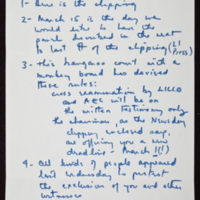 1- Here is the clipping
2- March 15 is the day we
would like to have the
panel described in the next
to last ¶ of the clipping (LI
Press)
3- This kangaroo court with a
monkey board has devised
these rules:
cross examination by LILCO
and AEC will be on
the written testimony only
the chairman, as the Newsday
clipping enclosed says,
are offering you a new
deadline - March 11(!)
4- All kinds of people appeared
last Wednesday to protest
the exclusion of you and other
witnesses